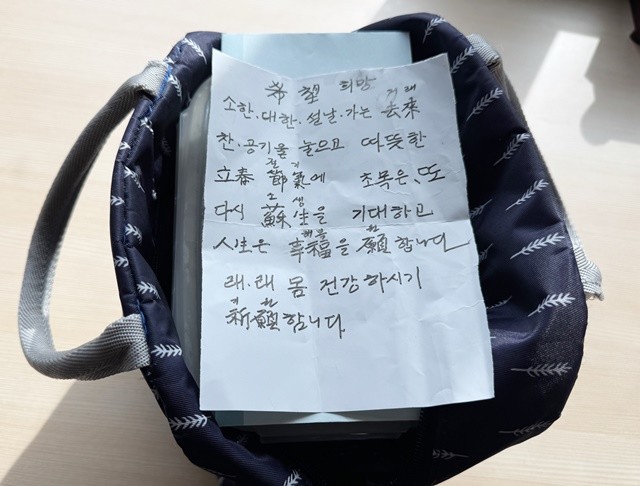 希望 희망
소한·대한·설날·가는 去來 거래
찬·공기을 놓으고 따뜻한
立春 節氣에 절기 초목은, 또
다시 蘇生을 소생 기대하고
人生은 幸福을 행복 願합니다 원
래·래 몸 건강하시기
祈願합니다 기원